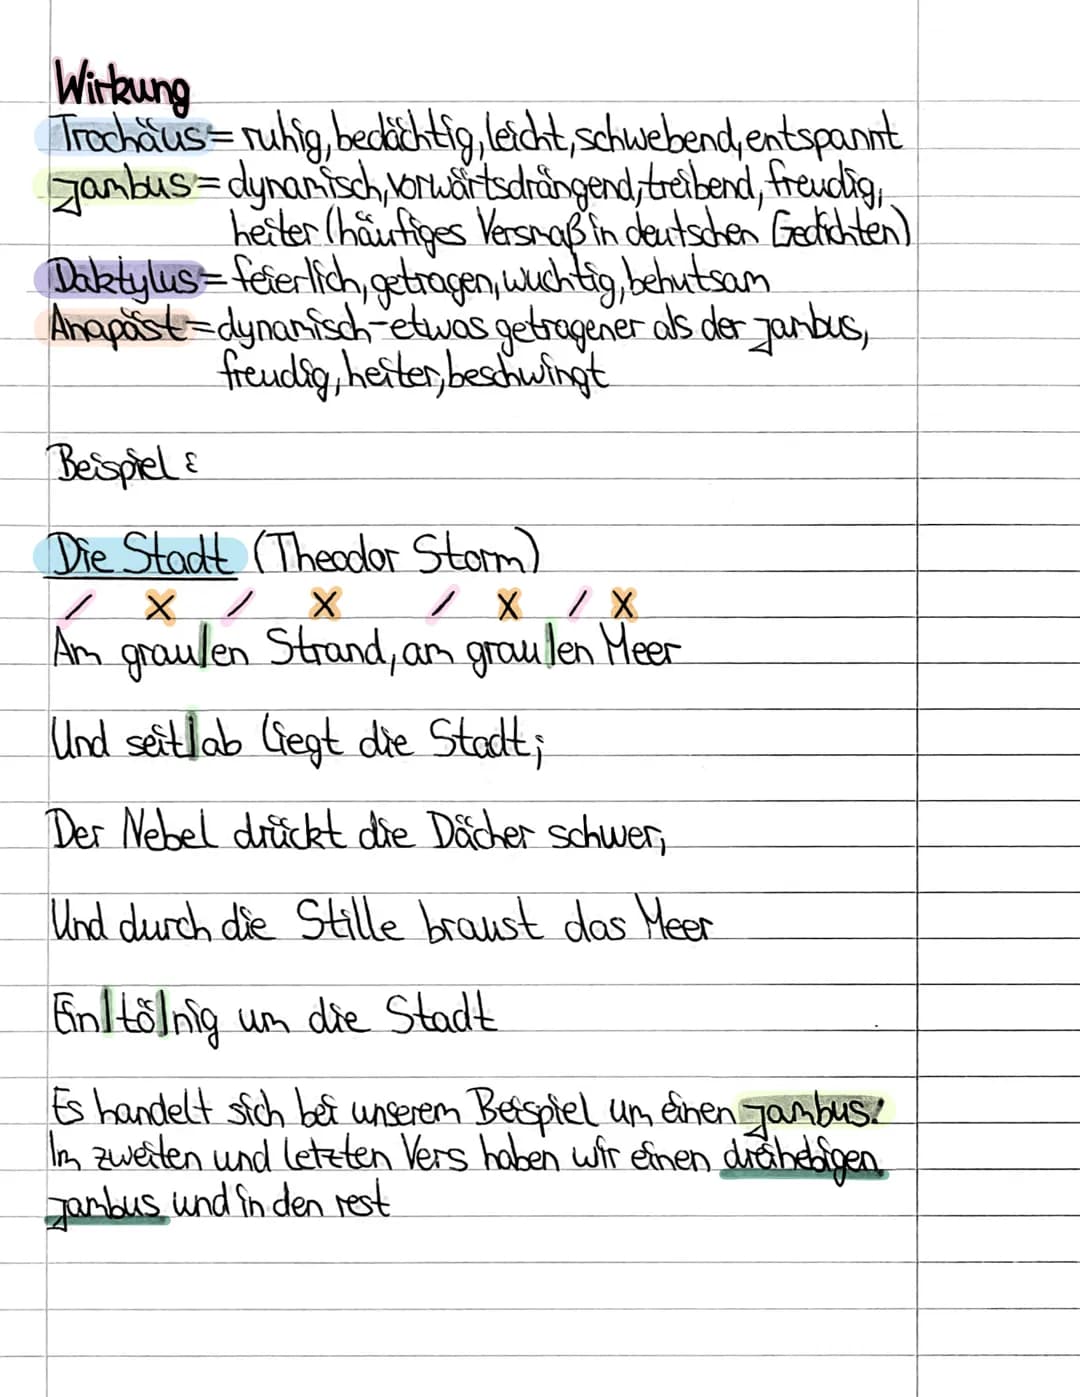 Wirkung
Trochäus = ruhig, bedächtig, leicht, schwebend, entspannt
Jambus = dynamisch, vorwärtsdrängend, treibend, freudig,
heiter (häufiges Versmaß in deutschen Gedichten)
Daktylus = feierlich, getragen, wuchtig, behutsam
Anapäst = dynamisch - etwas getragener als der Jambus,
freudig, heiter, beschwingt
Beispiel :
Die Stadt (Theodor Storm)
/ X / X / X / X
Am grau|en Strand, am grau|en Meer
Und seit|ab liegt die Stadt;
Der Nebel drückt die Dächer schwer,
Und durch die Stille braust das Meer
Ein|tö|nig um die Stadt
Es handelt sich bei unserem Beispiel um einen Jambus!
Im zweiten und letzten Vers haben wir einen dreihebigen
Jambus und in den rest